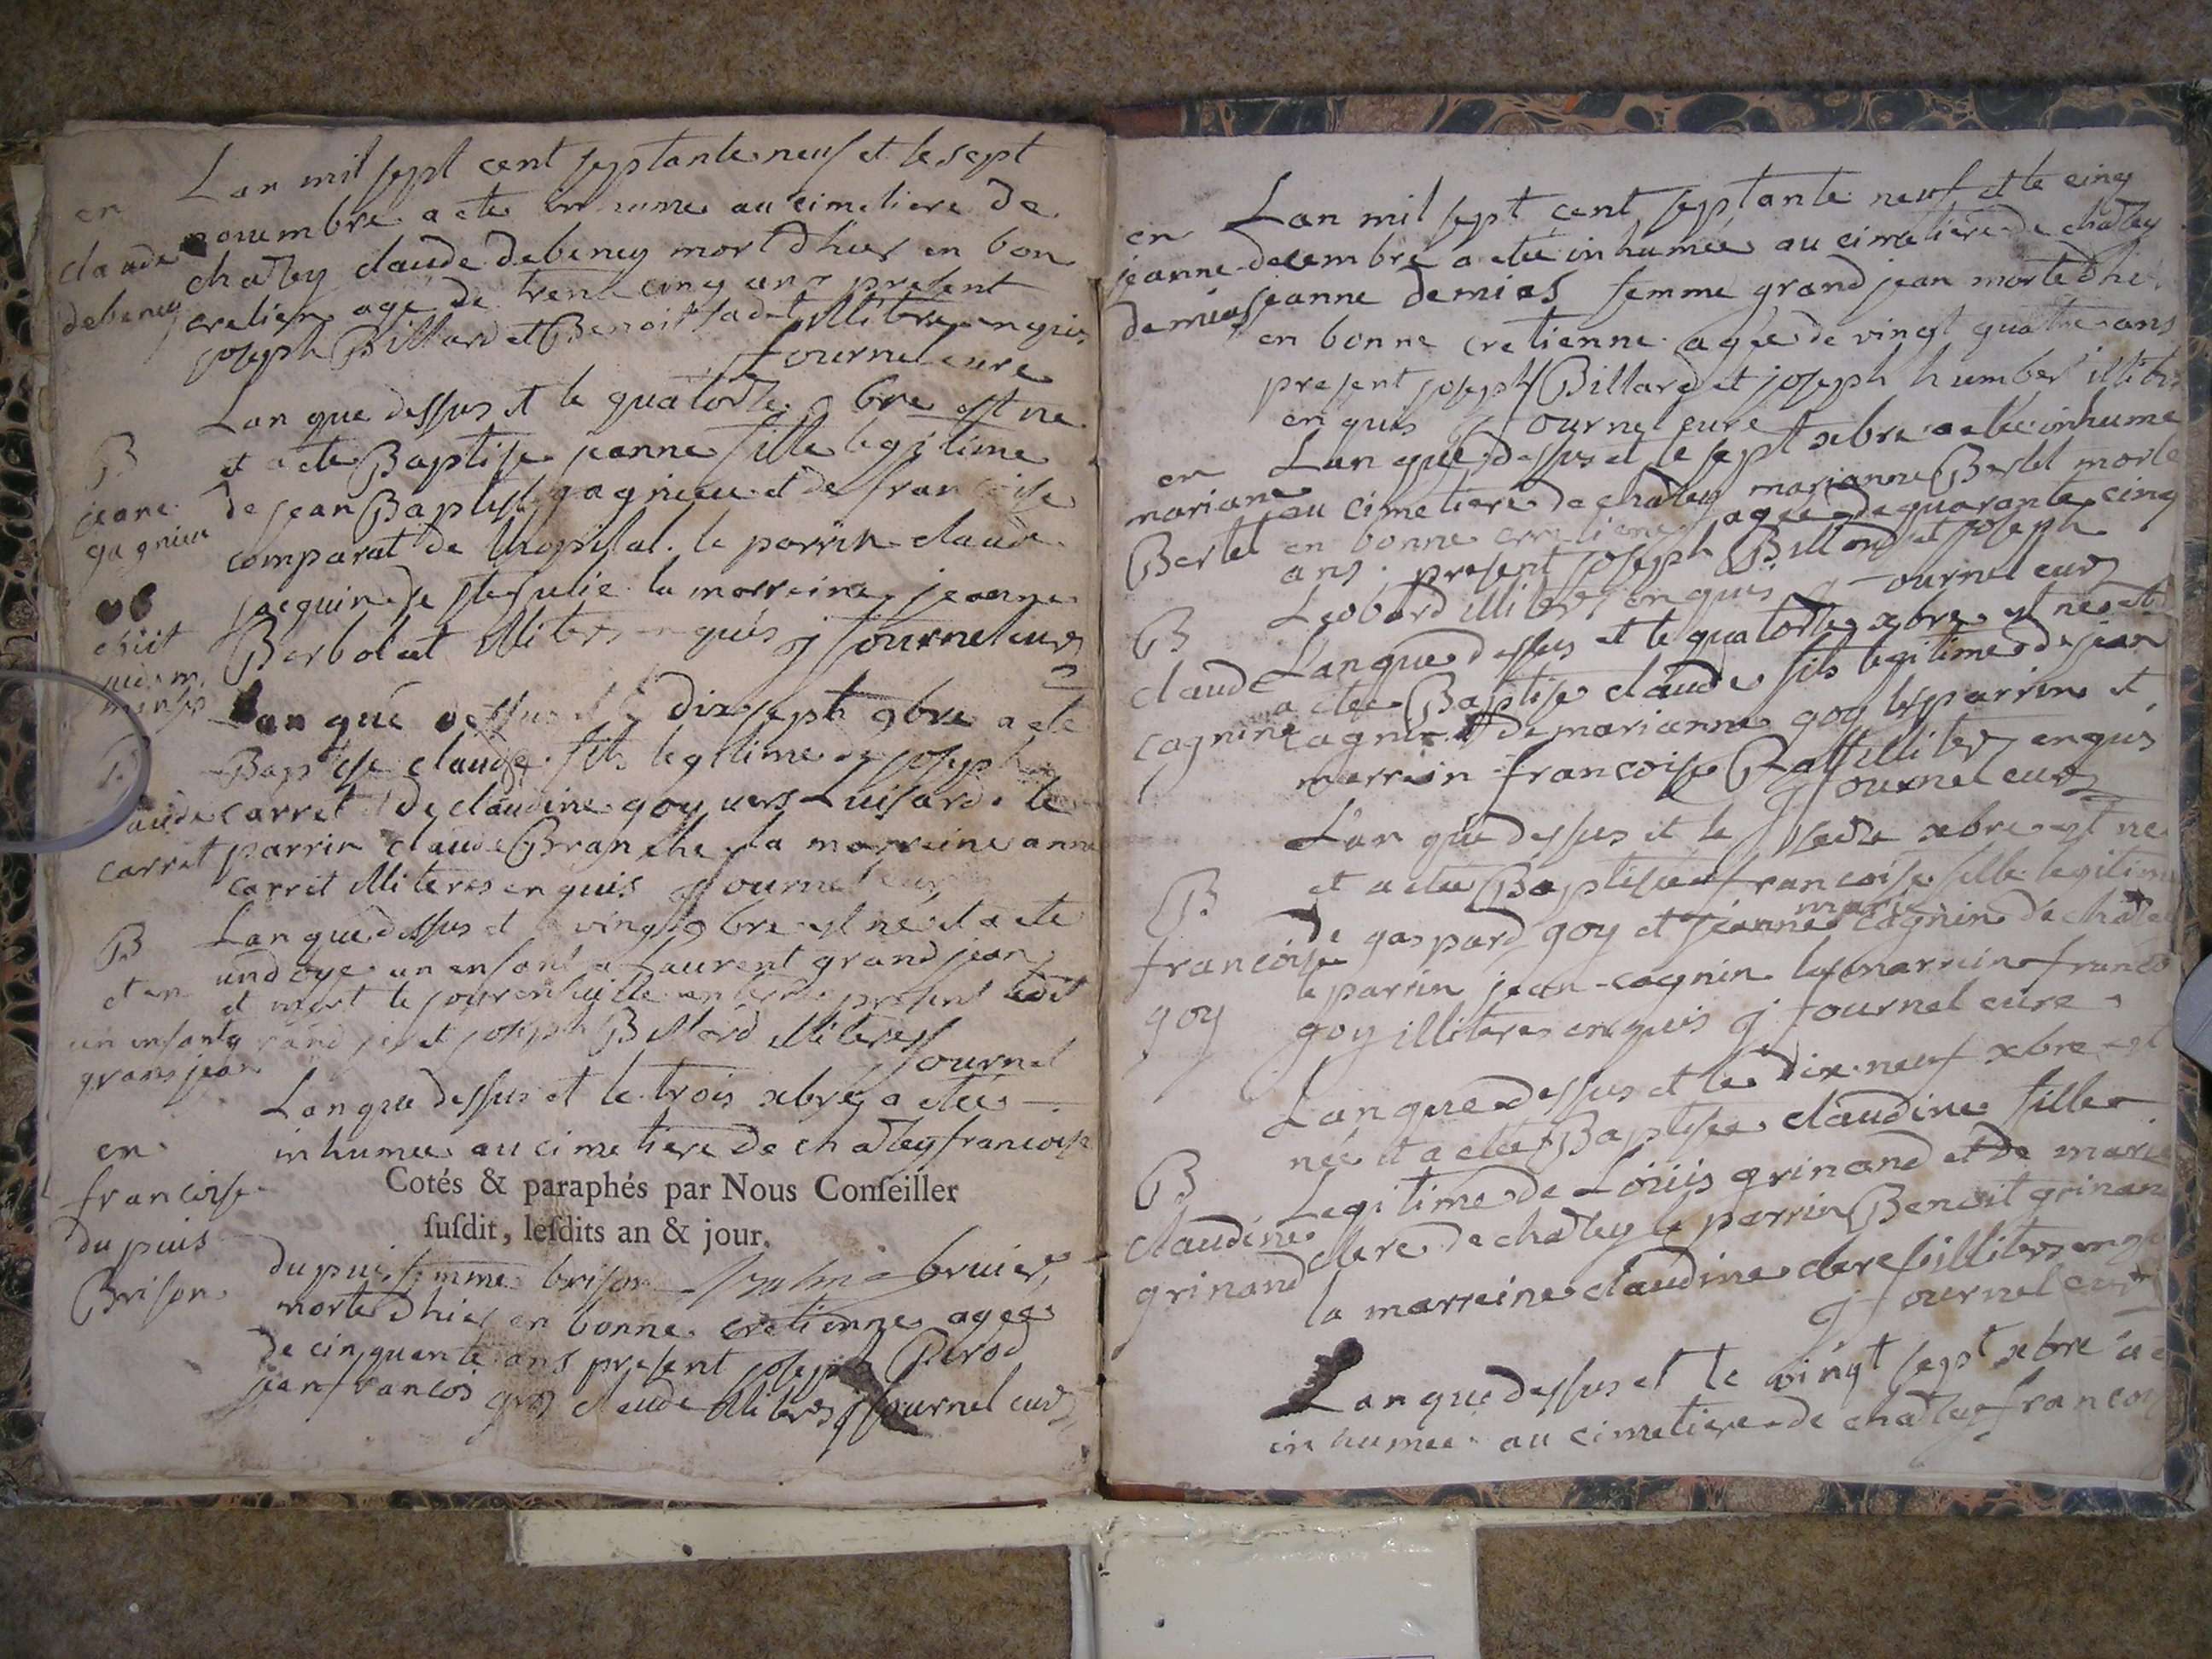 Lan mil sept cent septante neuf et le sept
en
nouembre a ete inhume au cimetiere de
claude
chatley claude debeney mort dhier en bon
debeney
cretien agé de trente cinq ans present
joseph Billard et Benoit illitere enquis
fournel cure
Lan que dessus et le quatorze 9bre est ne
B
et a ete Baptise jeanne fille legitime
jeane
de jean Baptiste gagnieu et de francoise
gagnieu
comparat de lhopital. le parrin claude
jacquin de ste julie la marreine jeanne
obiit
Barbolat illiteres enquis j fournel cure
eidem
mensis
Lan que dessus et le dix sept 9bre a ete
B
Baptise claude fils legitime de joseph
claude
carret et de claudine goy vers Luisard. le
carret
parrin claude Branche la marreine anne
carret illiteres enquis j fournel cure
B
Lan que dessus et le vingt 9bre est né et a ete
et en
undoye un enfant a Laurent grand jean
et mort le jour ensuitte enterre present ledit
un enfant
grand jean et joseph Billard illiteres
grand jean
fournel
Lan que dessus et le trois xbre a etee
en
inhumee au cimetiere de chatley francoise
francoise
Cotés & paraphés par Nous Conſeiller
ſuſdit, leſdits an & jour.
dupuis
dupuis femme brison bruier
Brison
morte dhier en bonne cretienne agee
de cinquante ans present joseph Perod
jean francois gros claude illiteres j fournel cure
Lan mil sept cent septante neuf et le cinq
en
jeanne
decembre a etée inhumée au cimetiere de chatley
demias
jeanne demias femme grand jean morte dhier
en bonne cretienne agée de vingt quatre ans
present joseph Billard et joseph humber illiteres
enquis j fournel cure
en
Lan que dessus et le sept xbre a etee inhume
mariane
au cimetiere de chatley marianne Bertet morte
Bertet
en bonne cretiene agée de quarante cinq
ans. present joseph Billard et joseph
Leobard illiteres enquis j fournel cure
B
Lan que dessus et le quatorze xbre est ne et
claude
a etee Baptise claude fils legitime de jean
cagnin
cagnin et de marianne goy le parrin et
marrein francoise Rat illiteres enquis
j fournel cure
Lan que dessus et le seize xbre est ne
B
et a etée Baptisée francoise fille legitime
francoise
de gaspard goy et jeanne marie cagnin de chatel
le parrin jean cagnin la marreine francoise
goy
goy illiteres enquis j fournel cure
Lan que dessus et le dix neuf xbre est
née et a etée Baptisee claudine fille
B
Legitime de Loüis grinand et de marie
claudine
clere de chatley le parrin Benoit grinand
grinand
la marreine claudine clere illiteres enquis
j fournel cure
Lan que dessus et le vingt sept xbre a e
inhumee au cimetiere de chatley francois